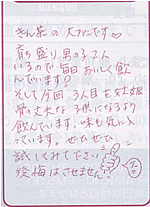 きな茶の大ファンです♡
育ち盛り男の子2人
いるので毎日おいしく飲
んでいます!
そして今回3人目を女の妊娠
骨の丈夫な子供になるよう
飲んでいます。味も気に入
っています。ぜひぜひ
試してみてださい
後悔はさせません